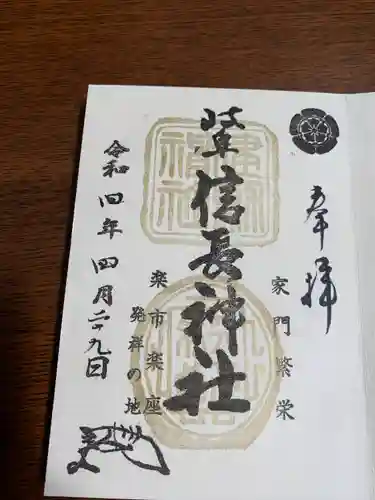 奉拝
家門繁栄
岐阜信長神社
楽市楽座
発祥の地
令和四年四月二十九日